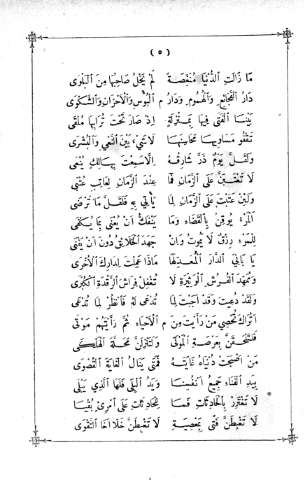 ( ٥ )
مَا زَالَتِ الدُّنْيَا مُنَغَّصَةً لَمْ يَخْلُ صَاحِبُهَا مِنَ الْبَلْوَى
دَارُ الْفَجَائِعِ وَالْهُمُومِ وَدَارُ م الْبُؤْسِ وَالْأَحْزَانِ وَالشَّكْوَى
بَيْنَا الْفَتَى فِيهَا بِمَنْزِلَةٍ إِذْ صَارَ تَحْتَ تُرَابِهَا مُلْقَى
تَقْفُو مَسَاوِيهَا مَحَاسِنَهَا لَا شَيْءَ بَيْنَ النَّعْيِ وَالْبُشْرَى
وَلَقَلَّ يَوْمٌ ذَرَّ شَارِقُهُ إِلَّا سَمِعْتَ بِهَالِكٍ يُنْعَى
لَا تَعْتِبَنَّ عَلَى الزَّمَانِ فَمَا عِنْدَ الزَّمَانِ لِعَاتِبٍ عُتْبَى
وَلَئِنْ عَتَبْتَ عَلَى الزَّمَانِ لِمَا يَأْتِي بِهِ فَلَقَلَّ مَا تَرْضَى
الْمَرْءُ يُوقِنُ بِالْقَضَاءِ وَمَا يَنْفَكُّ أَنْ يُعْنَى بِمَا يُكْفَى
لِلْمَرْءِ رِزْقٌ لَا يَمُوتُ وَإِنْ جَهَدَ الْخَلَائِقُ دُونَ أَنْ يَفْنَى
يَا بَانِيَ الدَّارِ الْمُعِدَّ لَهَا مَاذَا عَمِلْتَ لِدَارِكَ الْأُخْرَى
وَمُمَهِّدَ الْفُرُشِ الْوَثِيرَةِ لَا تُغْفِلْ فِرَاشَ الرَّقْدَةِ الْكُبْرَى
وَلَقَدْ دُعِيتَ وَقَدْ أَجَبْتَ لِمَا تُدْعَى لَهُ فَانْظُرْ لِمَا تُدْعَى
أَتُرَاكَ تُحْصِي مَنْ رَأَيْتَ مِنَ م الْأَحْيَاءِ ثُمَّ رَأَيْتَهُمْ مَوْتَى
فَلْتَلْحَقَنَّ بِعَرْصَةِ الْمَوْتَى وَلَتَنْزِلَنَّ مَحَلَّةَ الْهَلْكَى
مَنْ أَصْبَحَتْ دُنْيَاهُ غَايَتَهُ فَمَتَى يَنَالُ الْغَايَةَ الْقُصْوَى
بِيَدِ الْفَنَاءِ جَمِيعُ أَنْفُسِنَا وَيَدُ الْبِلَى فَلَهَا الَّذِي يَبْلَى
لَا تَغْتَرِرْ بِالْحَادِثَاتِ فَمَا لِلْحَادِثَاتِ عَلَى امْرِئٍ بُقْيَا
لَا تَغْبِطَنَّ فَتًى بِمَعْصِيَةٍ لَا تَغْبِطَنَّ خَلَا أَخَا التَّقْوَى